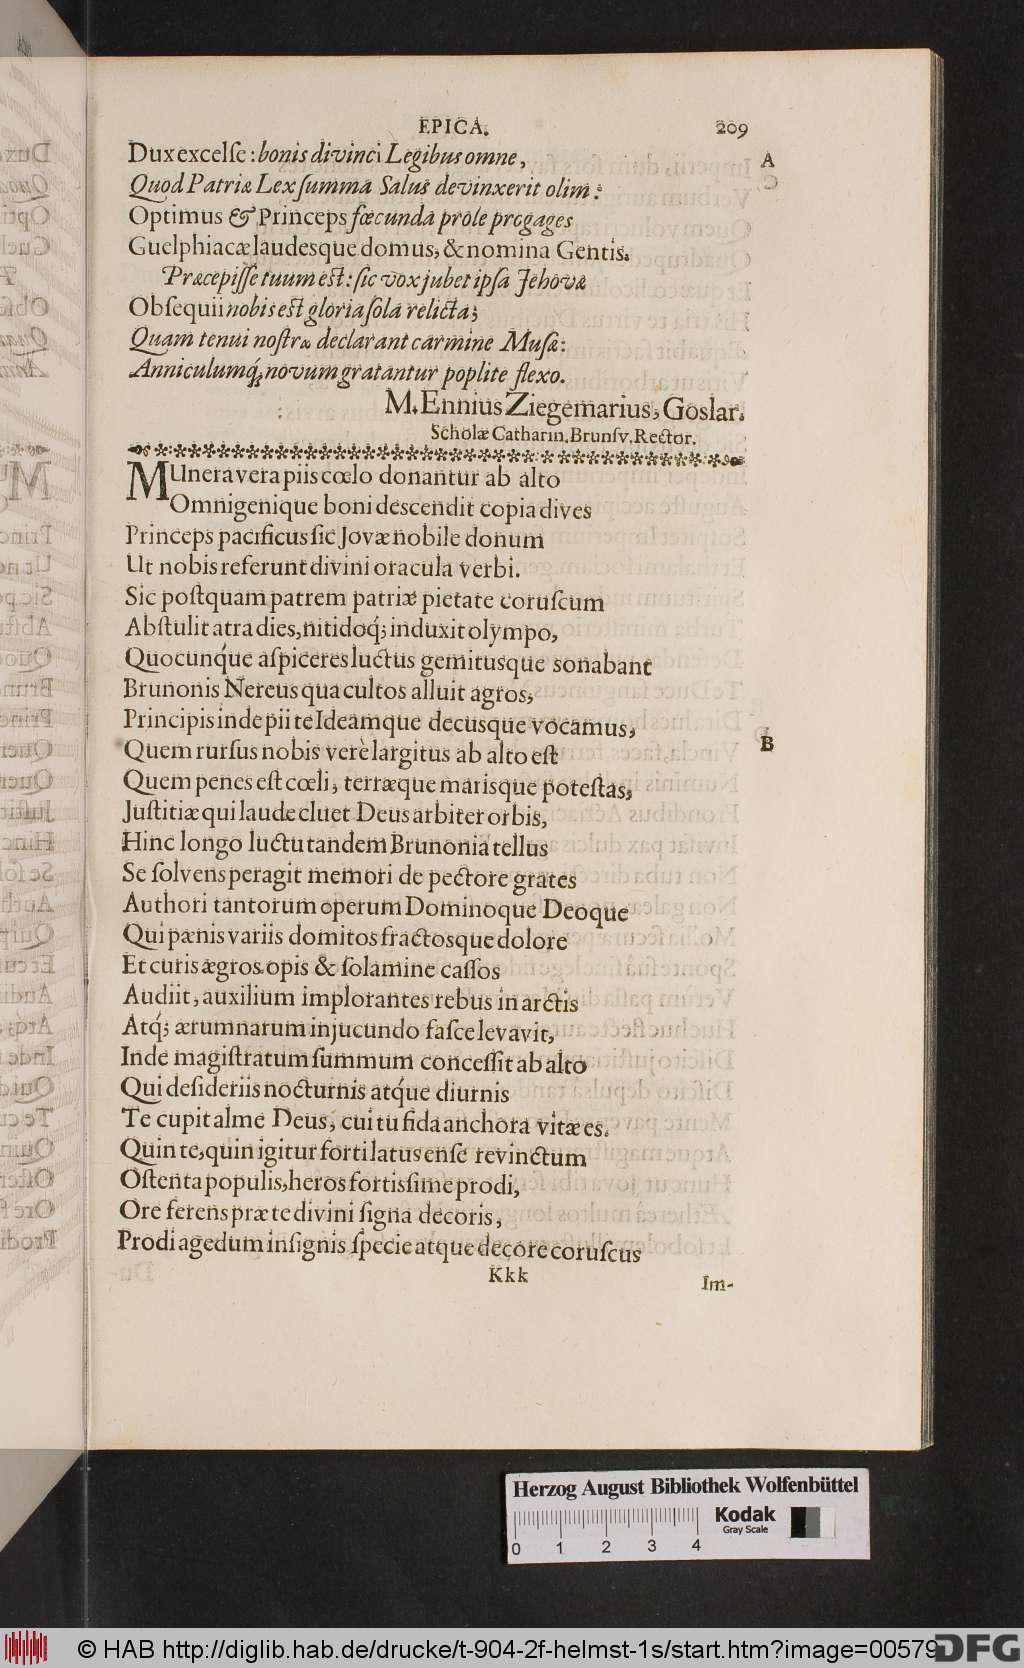 EPICA. 209
Dux excelſe: bonis divinci Legibus omne, A
Quod Patriæ Lex ſumma Salus devinxerit olim:
Optimus & Princeps fœcundâ prole progages
Guelphiacæ laudesque domus, & nomina Gentis.
Præcepiſſe tuum est: ſic vox jubet ipſa Jehovæ
Obſequii nobis est gloria ſola relicta;
Quam tenui nostræ declarant carmine Muſæ:
Anniculumq́; novum gratantur poplite flexo.
M. Ennius Ziegemarius, Goslar.
Scholæ Catharin. Brunſv. Rector.
MUnera vera piis cœlo donantur ab alto
Omnigenique boni descendit copia dives
Princeps pacificus ſic Jovæ nobile donum
Ut nobis referunt divini oracula verbi.
Sic poſtquam patrem patriæ pietate coruſcum
Abſtulit atra dies, nitidoq́; induxit olympo,
Quocunq́ue aſpiceres luctus gemitusque sonabant
Brunonis Nereus qua cultos alluit agros,
Principis inde pii te Ideamque decusque vocamus,
Quem rurſus nobis verè largitus ab alto eſt B
Quem penes eſt cœli, terræque marisque poteſtas,
Juſtitiæ qui laude cluet Deus arbiter orbis,
Hinc longo luctu tandem Brunonia tellus
Se ſolvens peragit memori de pectore grates
Authori tantorum operum Dominoque Deoque
Qui pænis variis domitos fractosque dolore
Et curis ægros opis & ſolamine caſſos
Audiit, auxilium implorantes rebus in arctis
Atq́; ærumnarum injucundo faſce levavit,
Inde magiſtratum ſummum conceſſit ab alto
Qui deſideriis nocturnis atq́ue diurnis
Te cupit alme Deus, cui tu fida anchora vitæ es.
Quin te, quin igitur forti latus enſe revinctum
Oſtenta populis, heros fortisſime prodi,
Ore ferens præ te divini ſigna decoris,
Prodi agedum inſignis ſpecie atque decore coruſcus
Kkk Im-
Herzog August Bibliothek Wolfenbüttel
Kodak
Gray Scale
0 1 2 3 4
© HAB http://diglib.hab.de/drucke/t-904-2f-helmst-1s/start.htm?image=00579
DFG